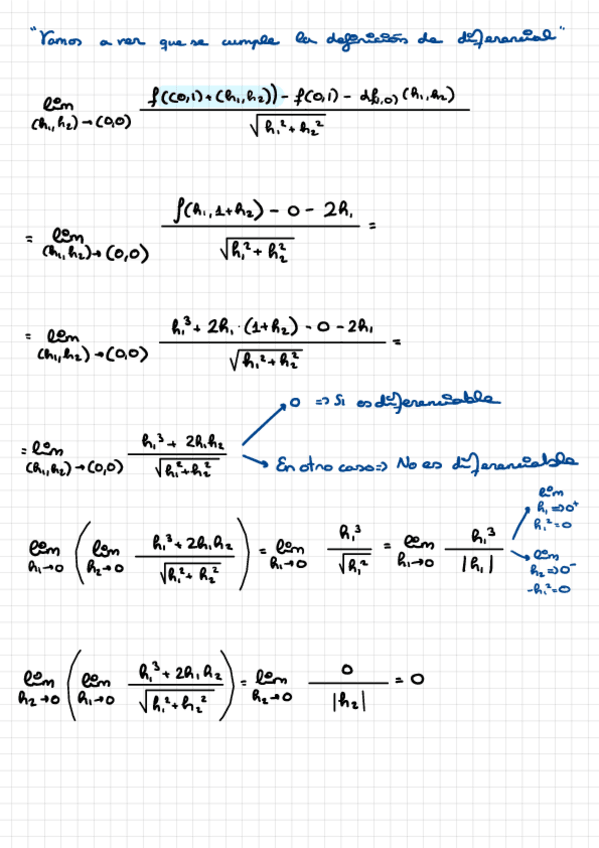 "Vamos a ver que se cumple la definición de diferencial"
lim (h₁,h₂)→(0,0) f((0,1)+(h₁,h₂)) - f(0,1) - df(1,0)(h₁,h₂) / √(h₁²+h₂²)
= lim (h₁,h₂)→(0,0) f(h₁,1+h₂) - 0 - 2h₁ / √(h₁²+h₂²) =
= lim (h₁,h₂)→(0,0) h₁³ + 2h₁·(1+h₂) - 0 - 2h₁ / √(h₁²+h₂²) =
0 ⇒ Si es diferenciable
= lim (h₁,h₂)→(0,0) h₁³ + 2h₁h₂ / √(h₁²+h₂²)
En otro caso ⇒ No es diferenciable
lim h₁⇒0⁺ h₁²=0
lim h₁→0 ( lim h₂→0 h₁³+2h₁h₂ / √(h₁²+h₂²) ) = lim h₁→0 h₁³ / √h₁² = lim h₁→0 h₁³ / |h₁|
lim h₂⇒0⁻ -h₁²=0
lim h₂→0 ( lim h₁→0 h₁³+2h₁h₂ / √(h₁²+h₂²) ) = lim h₂→0 0 / |h₂| = 0